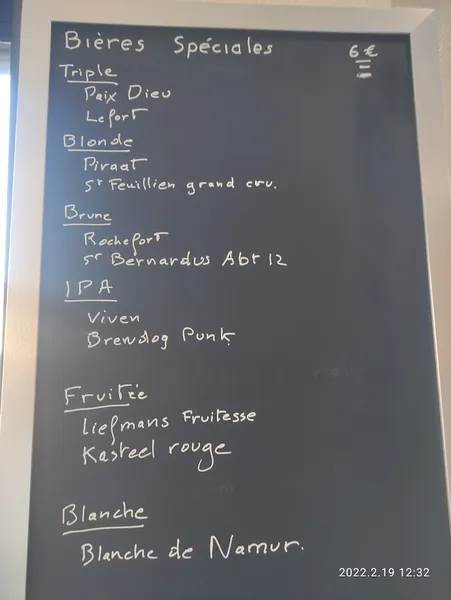 Bières Spéciales 6 €
Triple
Paix Dieu
Lefort
Blonde
Piraat
St Feuillien grand cru.
Brune
Rochefort
St Bernardus Abt 12
IPA
Viven
Brewdog Punk
Fruitée
Liefmans Fruitesse
Kasteel rouge
Blanche
Blanche de Namur.
2022.2.19 12:32